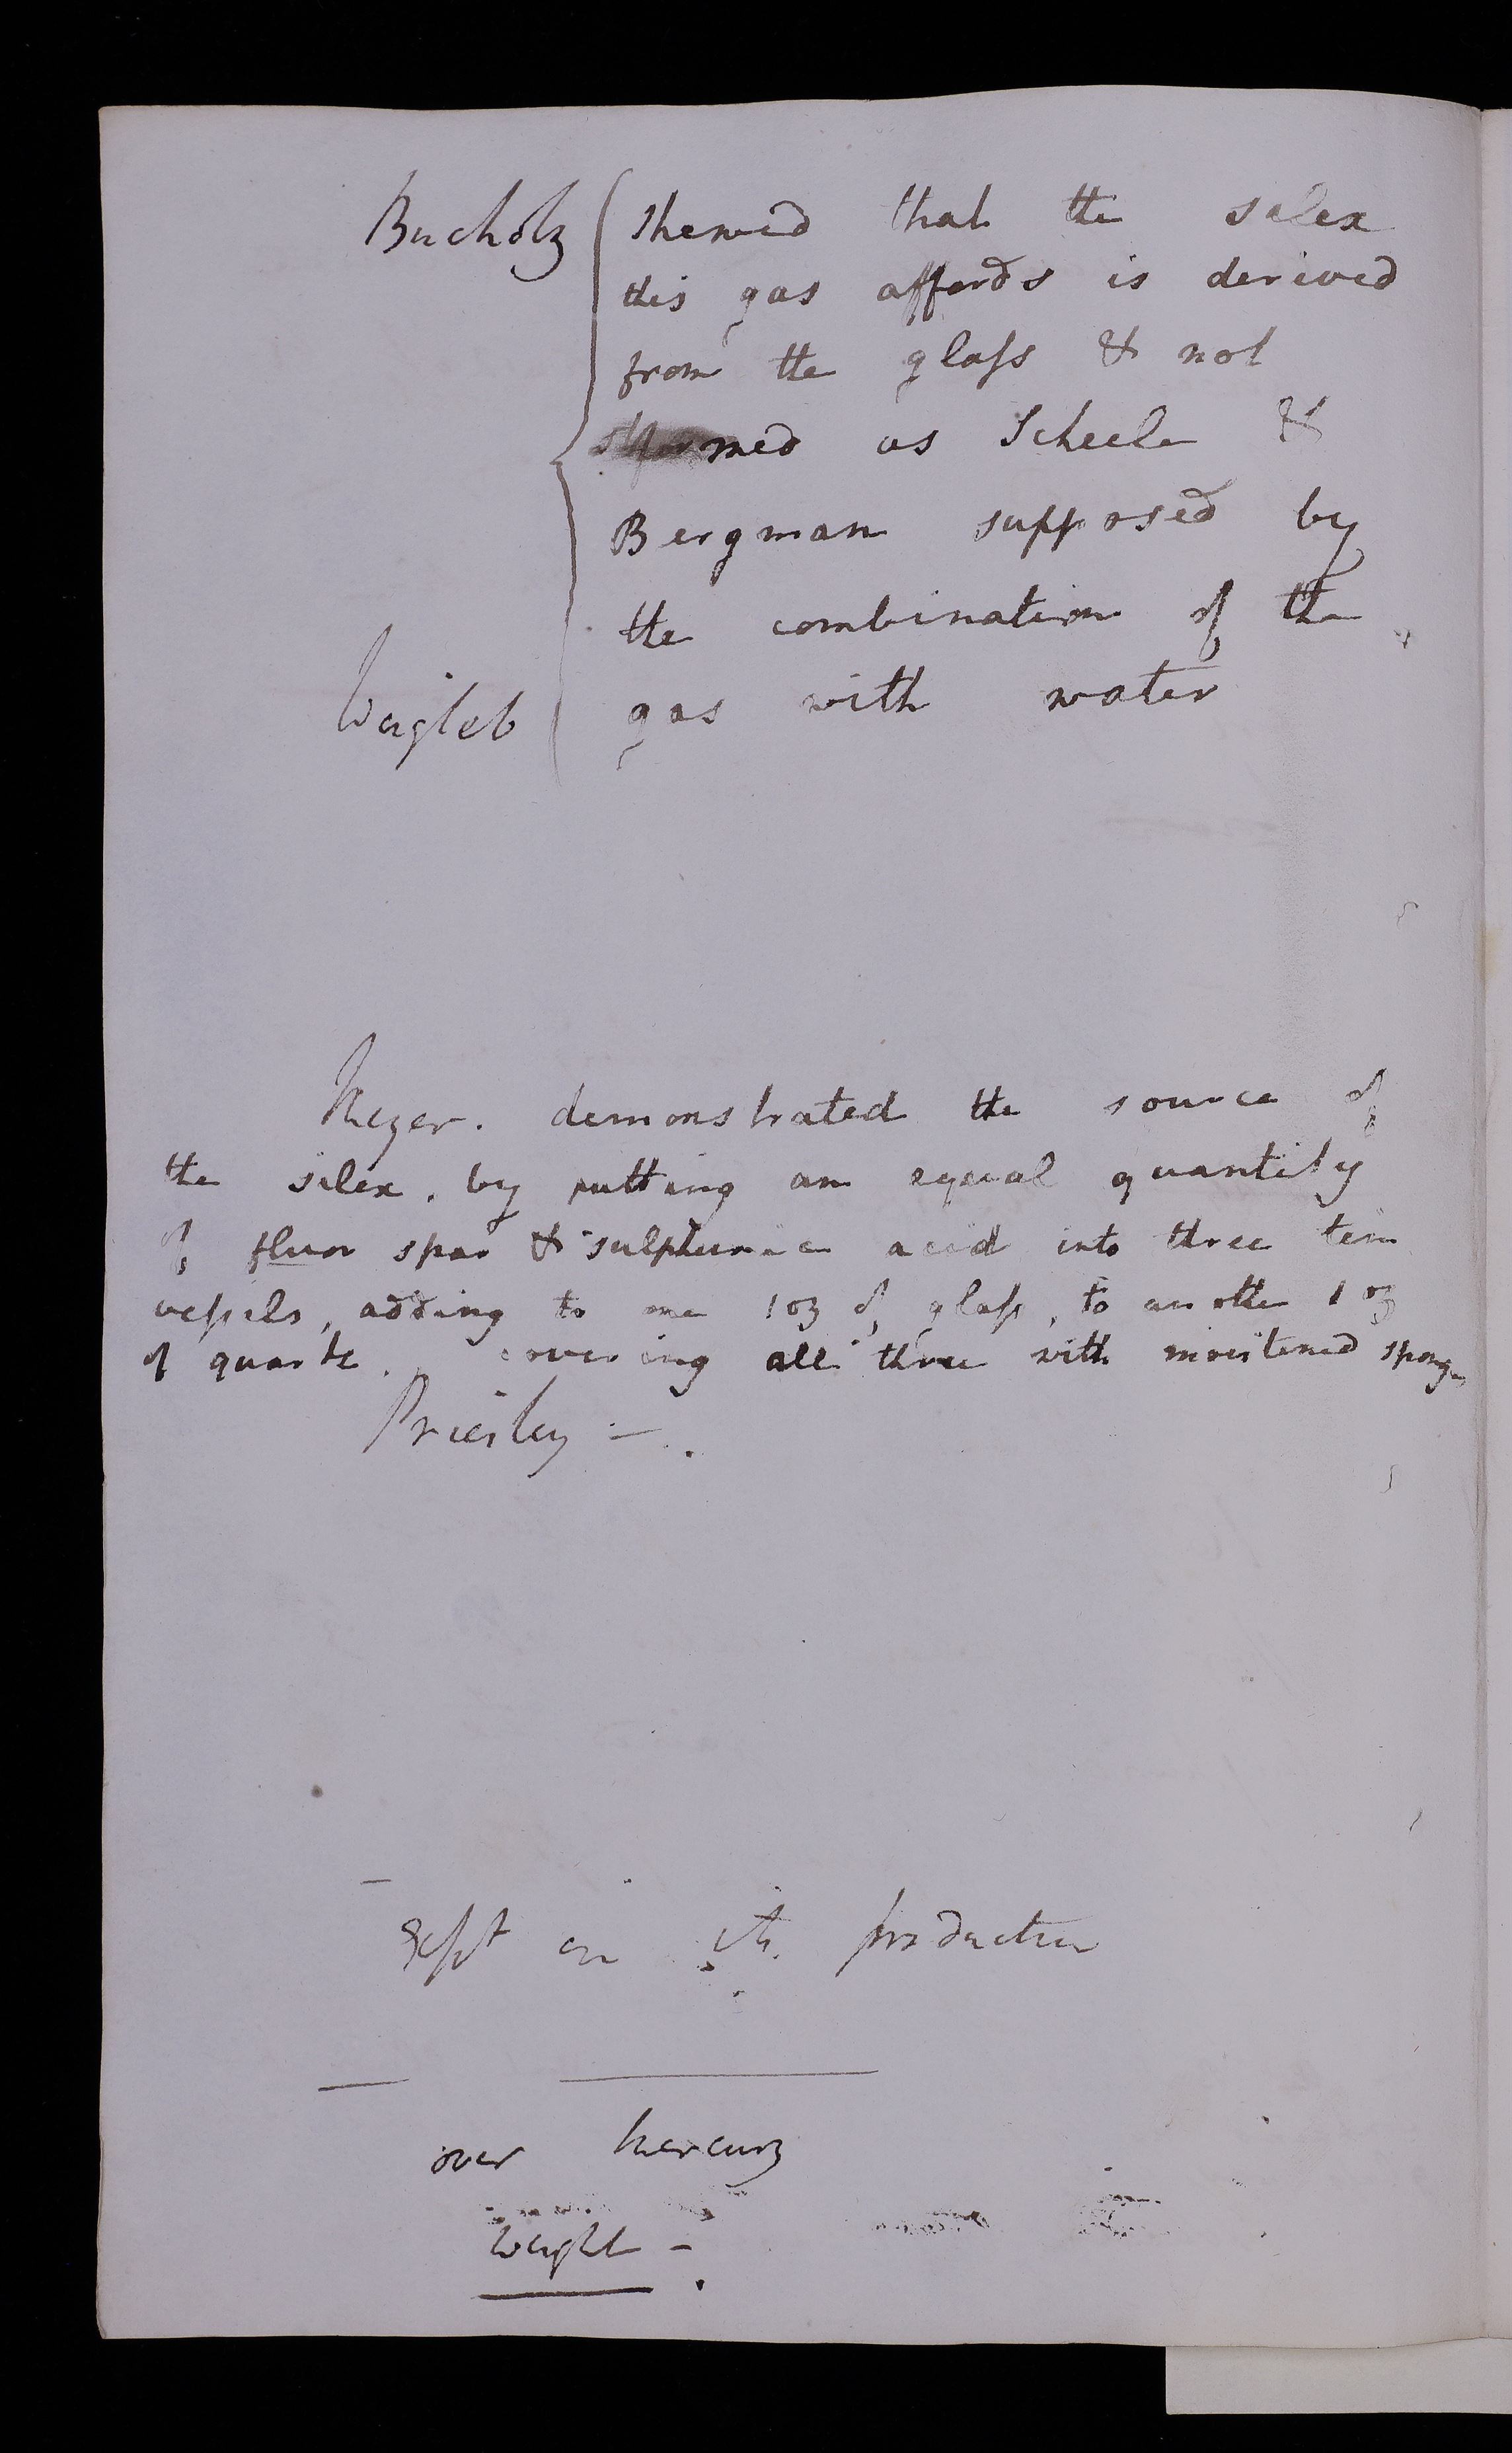 Bucholz shewed that the silex
this gas affords is derived
from the glass & not
formed as Scheele &
Bergman supposed by
the combination of the
Wiegleb gas with water
Meyer. demonstrated the source of
the silex, by putting an equal quantity
of fluor spar & sulphuric acid into three tin
vessels, adding to one 1 oz of glass, to another 1 oz
of quartz. covering all three with moistened sponge
Priesley -.
Expt on its production
over Mercury
Weight -